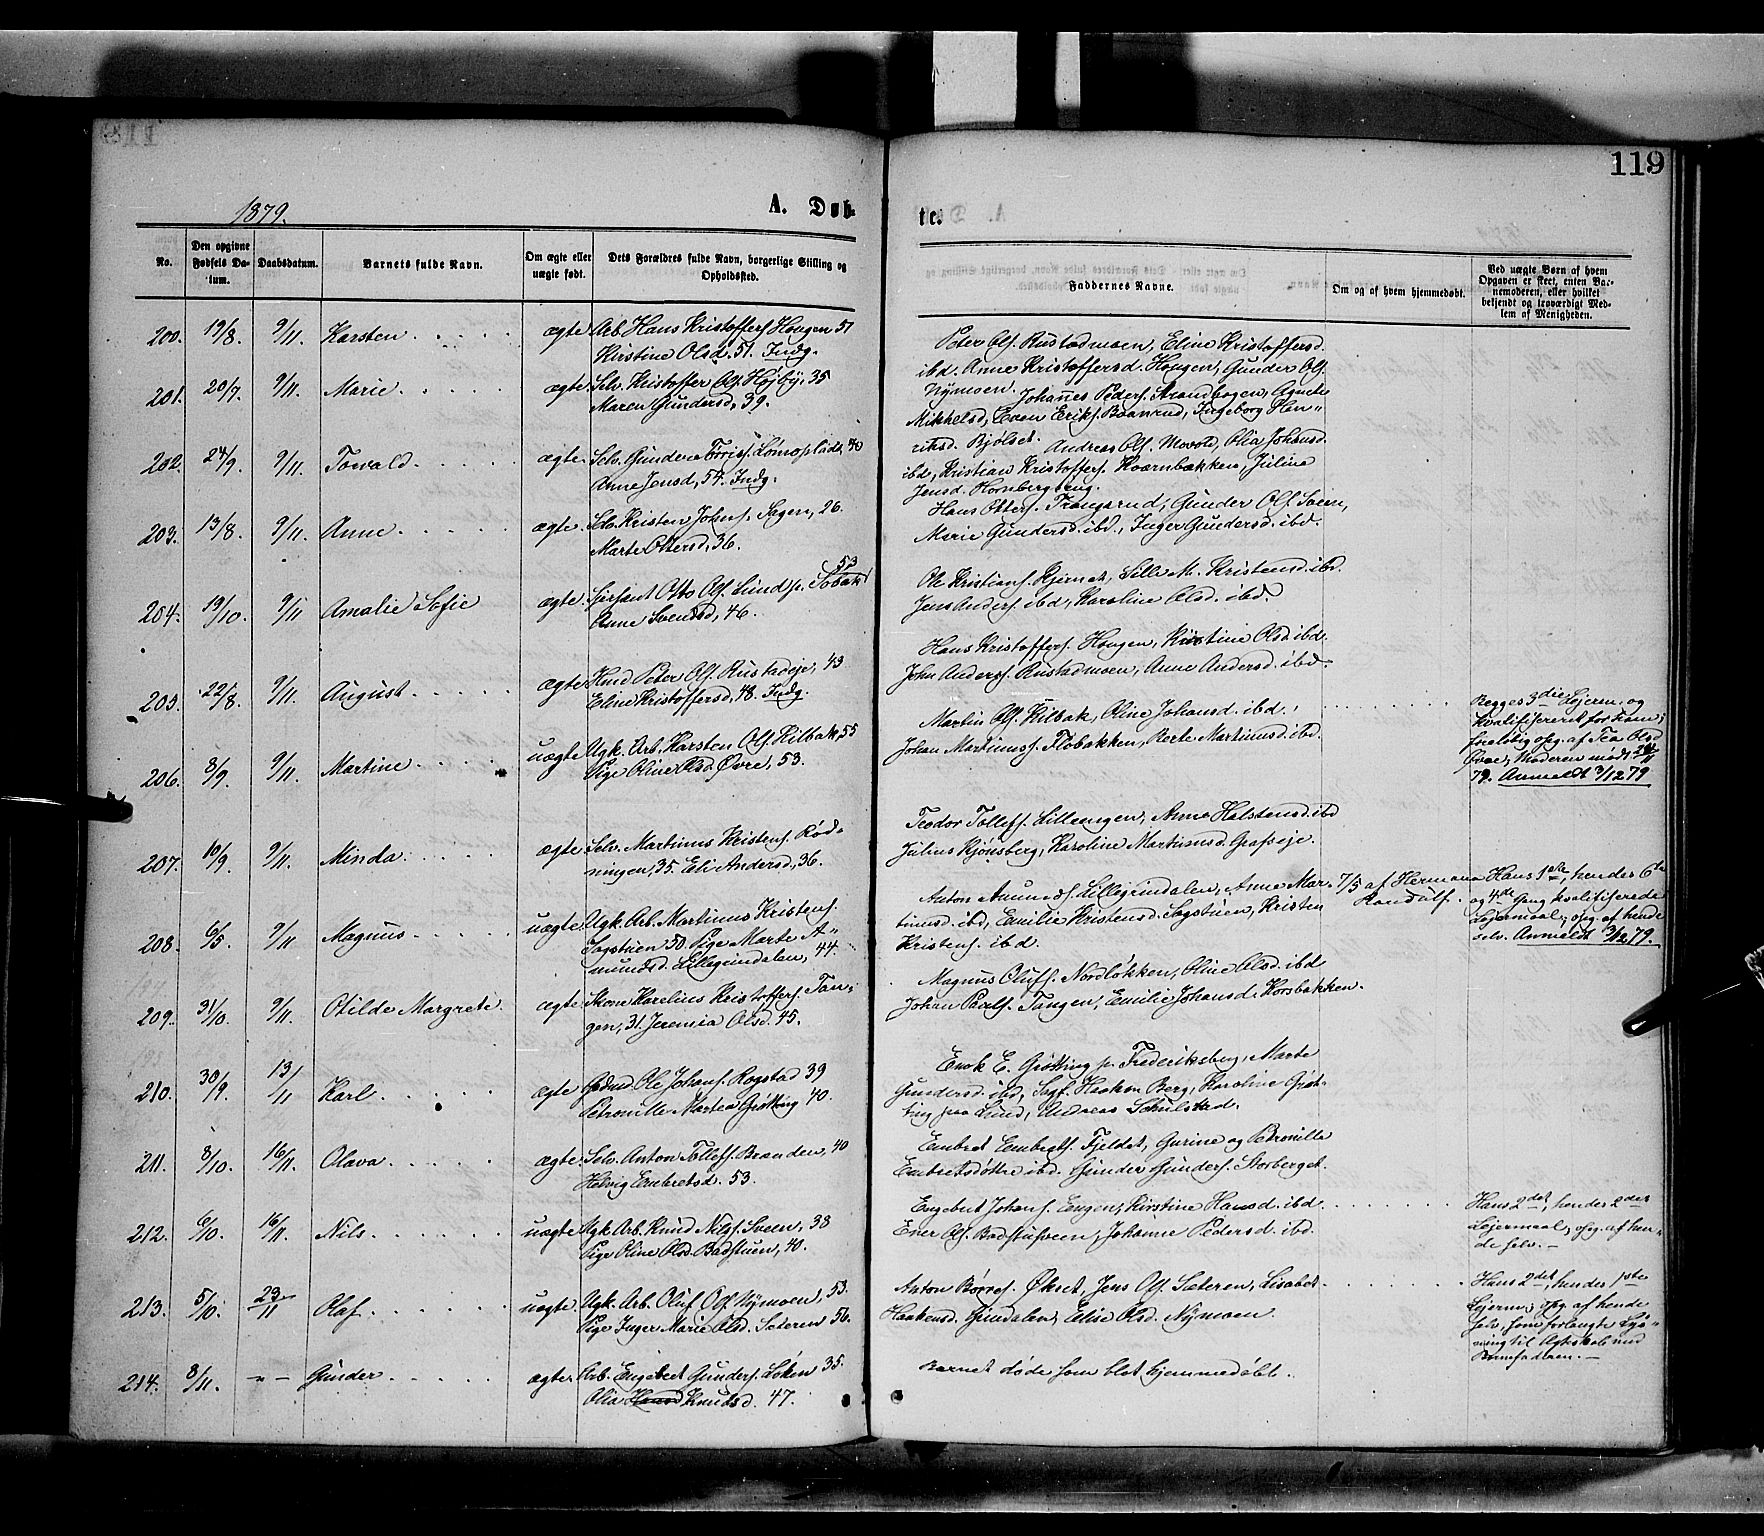 119
1879.
A. Døb-
te.
No.
Den opgivne Fødsels Da-
tum.
Daabsdatum.
Barnets fulde Navn.
Om ægte eller
uægte født.
Dets Forældres fulde Navn, borgerlige Stilling og
Opholdssted.
Faddernes Navne.
Om og af hvem hjemmedøbt.
Ved uægte Børn af hvem
Opgaven er skeet, enten Bar-
nemoderen, eller hvilket
bekjendt og troværdigt Med-
lem af Menigheden.
200. 19/8. 9/11. Karsten ægte Arb. Hans Kristoffers. Hougen 51
Kirstine Olsd. 51. Indg.
Peter Ols. Rustadmoen, Eline Kristoffersd.
ibd. Anne Kristoffersd. Hougen, Gunder Ols.
Nymoen.
201. 20/7. 9/11. Marie ægte Selv. Kristoffer Ols. Højby, 35
Maren Gundersd, 39.
Johannes Peders. Strandbagen, Agnete
Mikkelsd, Even Eriks. Baanrud, Ingeborg Hen-
riksd. Bjølset.
202. 24/9. 9/11. Torvald ægte Selv. Gunder Tørriss. Lømoplads, 40
Anne Jensd, 54. Indg.
Andreas Ols. Movold, Olia Johansd.
ibd, Kristian Kristoffers. Kvernbækken, Juline
Jensd. Hornbergseng.
203. 13/8. 9/11. Anne ægte Selv. Kristen Johns. Sagen, 26.
Marte Ottersd, 36.
Hans Otters. Trangsrud, Gunder Ols. Sveen,
Marie Gundersd. ibd., Inger Gundersd. ibd.
204. 19/10. 9/11 Amalie Sofie ægte Serjeant Otto Ols. Lund p. Sobak, 53
Anne Svendsd, 46.
Ole Kristians. Kjernet, Sille M. Kristensd. ibd.
Jens Anders. ibd, Karoline Olsd. ibd.
205. 22/8. 9/11. August ægte Hmd Peter Ols. Rustadeje, 43
Eline Kristoffersd, 48. Indg.
Hans Kristoffers. Hougen, Kirstine Olsd. ibd.
John Anderss. Rustadmoen, Anne Andersd. ibd.
206. 8/9. 9/11. Martine uægte Ugk. Arb. Karsten Ols. Kilbak, 55
Pige Oline Olsd. Øvre, 53.
Martin Ols. Kilbak, Oline Johansd. ibd.
Johan Martinuss. Flobakken, Berte Martinusd. ibd.
Begges 3die Lejerm. og
kvalificeret for ham;
foreløbig opg. af Tea Olsd
Øvre, Moderen mødt 29/11
79. Anmeldt 3/12 79
207. 10/9. 9/11. Minda ægte Selv. Martinus Kristens. Rød-
ningen, 35. Eli Andersd, 36.
Teodor Tollefs. Lillemyen, Anne Halstensd. ibd
Julius Kjønsberg, Karoline Martinusd. Grafseje.
208. 6/5. 9/11 Magnus uægte Ugk. Arb. Martinus Kristens.
Sagstuen 50. Pige Marte A-
mundsd. Lillegrindalen, 44.
Anton Amunds. Lillegrindalen, Anne Mar-
tinusd. ibd, Emilie Kristensd. Sagstuen, Kristen
Kristens. ibd.
7/5 af Hermana
Haadulf.
Hans 1ste, hendes 6te
og 4de Gang kvalificerede
Lejermaal; opg. af hende
selv. Anmeldt 3/12 79.
209. 31/10. 9/11. Otilde Margrete. ægte Skom. Karelius Kristoffers. Tan-
gen, 31. Jeremia Olsd. 45.
Magnus Olufs. Nordløkken, Oline Olsd. ibd
Johan Pauls. Tangen, Emilie Johansd. Korsbakken.
210. 30/9. 13/11 Karl ægte Gbdmd. Ole Johans. Rogstad 39
Petronille Martea Grøtting 40.
Enok E. Grøtting p. Frederiksberg, Marte
Gundersd. ibd, Sagf. Haakon Berg, Karoline Grøt-
ting paa Lund, Andreas Schulstad.
211. 8/10. 16/11. Olava ægte Selv. Anton Tollefs. Branden, 40
Helvig Embretsd. 53.
Embret Embrets. Fjeldet, Gurine og Petronille
Embretsdøttre ibd. Gunder Gunders. Storberget.
212. 6/10. 16/11. Nils uægte Ugk. Arb. Knud Nilss. Sveen, 38
Pige Oline Olsd. Badstuen, 40.
Engebret Johans. Engen, Kirstine Hansd. ibd.
Ener Ols. Badstusveen, Johanne Pedersd. ibd.
Hans 2det, hendes 2det
Lejermaal; opg. af hen-
de selv. –
213. 5/10. 23/11 Olaf uægte Ugk. Arb. Oluf Ols. Nymoen, 53.
Pige Inger Marie Olsd. Seteren 56.
Anton Børres. Økset, Jens Ols. Sæteren, Lisabet
Haakensd. Grindalen, Elise Olsd. Nymoen.
Hans 2det, hendes 1ste
Lejerm; opg. af hende
selv, som forlangte Lys-
ning til Ægteskab med
Barnefaderen. –
214. 8/11. -"- Gunder ægte Arb. Engebret Gunders. Løken 35.
Olia Hansd Knudsd. 47.
Barnet døde som blot hjemmedøbt.